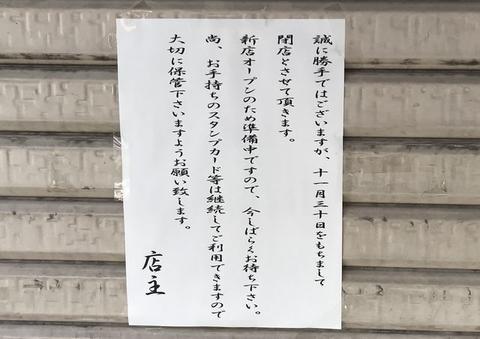 誠に勝手ではございますが、十一月三十日をもちまして
閉店とさせて頂きます。
新店オープンのため準備中ですので、今しばらくお待ち下さい。
尚、お手持ちのスタンプカード等は継続してご利用できますので
大切に保管下さいますようお願い致します。
店主